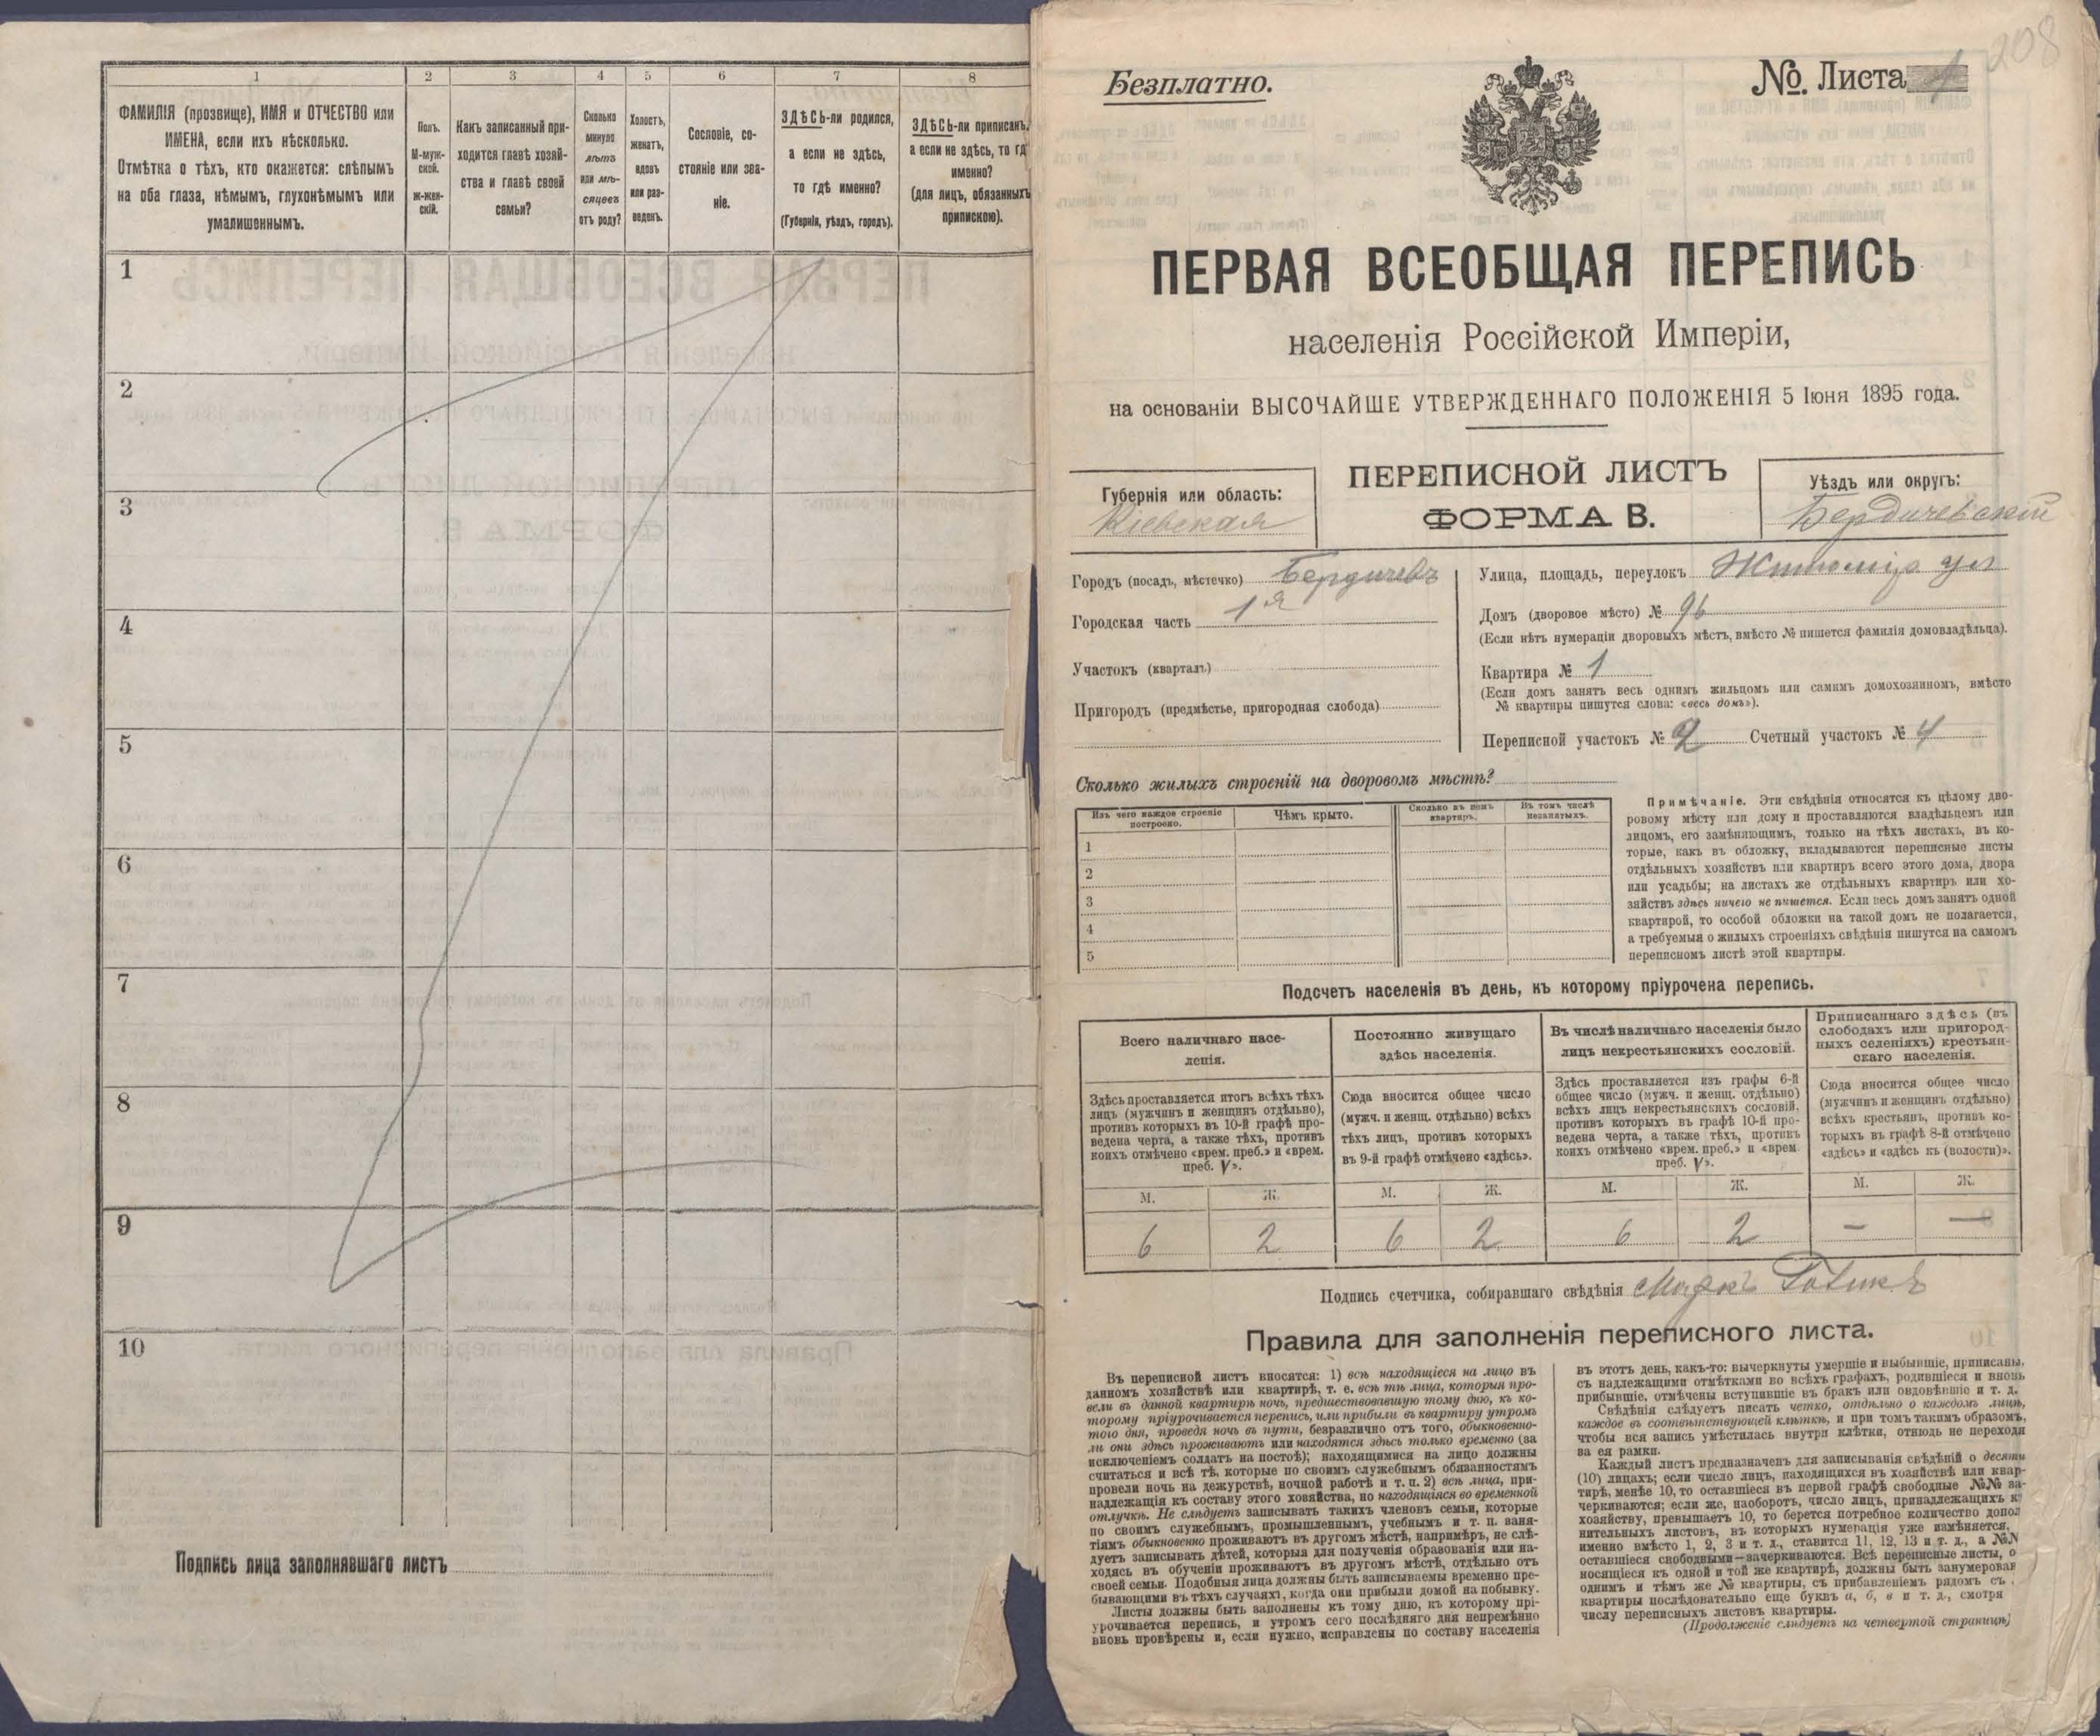 1 2 3 4 5 6 7 8
ФАМИЛІЯ (прозвище), ИМЯ и ОТЧЕСТВО или
ИМЕНА, если ихъ нѣсколько.
Отмѣтка о тѣхъ, кто окажется: слѣпымъ
на оба глаза, нѣмымъ, глухонѣмымъ или
умалишеннымъ.
Полъ.
М-муж-
ской.
Ж-жен-
скій.
Какъ записанный при-
ходится главѣ хозяй-
ства и главѣ своей
семьи?
Сколько
минуло
лѣтъ
или мѣ-
сяцевъ
отъ роду?
Холостъ,
женатъ,
вдовъ
или раз-
веденъ.
Сословіе, со-
стояніе или зва-
ніе.
ЗДѢСЬ-ли родился,
а если не здѣсь,
то гдѣ именно?
(Губернія, уѣздъ, городъ).
ЗДѢСЬ-ли приписанъ,
а если не здѣсь, то гд
именно?
(для лицъ, обязанныхъ
припискою).
1
2
3
4
5
6
7
8
9
10
Подпись лица заполнявшаго листъ
208
Безплатно.
№ Листа 1
ПЕРВАЯ ВСЕОБЩАЯ ПЕРЕПИСЬ
населенія Россійской Имперіи,
на основаніи ВЫСОЧАЙШЕ УТВЕРЖДЕННАГО ПОЛОЖЕНІЯ 5 Іюня 1895 года.
ПЕРЕПИСНОЙ ЛИСТЪ
ФОРМА В.
Губернія или область:
Кіевская
Уѣздъ или округъ:
Бердичевскій
Городъ (посадъ, мѣстечко) Бердичевъ
Городская часть 1я
Участокъ (кварталъ)
Пригородъ (предмѣстье, пригородная слобода)
Улица, площадь, переулокъ Житомір ул
Домъ (дворовое мѣсто) № 96
(Если нѣтъ нумераціи дворовыхъ мѣстъ, вмѣсто № пишется фамилія домовладѣльца).
Квартира № 1
(Если домъ занятъ весь однимъ жильцомъ или самимъ домохозяиномъ, вмѣсто
№ квартиры пишутся слова: «весь домъ»).
Переписной участокъ № 2 Счетный участокъ № 4
Сколько жилыхъ строеній на дворовомъ мѣстѣ?
Изъ чего каждое строеніе
построено.
Чѣмъ крыто.
Сколько въ немъ
квартиръ.
Въ томъ числѣ
незанятыхъ.
1
2
3
4
5
Примѣчаніе. Эти свѣдѣнія относятся къ цѣлому дво-
ровому мѣсту или дому и проставляются владѣльцемъ или
лицомъ, его замѣняющимъ, только на тѣхъ листахъ, въ ко-
торые, какъ въ обложку, вкладываются переписные листы
отдѣльныхъ хозяйствъ или квартиръ всего этого дома, двора
или усадьбы; на листахъ же отдѣльныхъ квартиръ или хо-
зяйствъ здѣсь ничего не пишется. Если весь домъ занятъ одной
квартирой, то особой обложки на такой домъ не полагается,
а требуемыя о жилыхъ строеніяхъ свѣдѣнія пишутся на самомъ
переписномъ листѣ этой квартиры.
Подсчетъ населенія въ день, къ которому пріурочена перепись.
Всего наличнаго насе-
ленія.
Здѣсь проставляется итогъ всѣхъ тѣхъ
лицъ (мужчинъ и женщинъ отдѣльно),
противъ которыхъ въ 10-й графѣ про-
ведена черта, а также тѣхъ, противъ
коихъ отмѣчено «врем. преб.» и «врем.
преб. V».
Постоянно живущаго
здѣсь населенія.
Сюда вносится общее число
(мужч. и женщ. отдѣльно) всѣхъ
тѣхъ лицъ, противъ которыхъ
въ 9-й графѣ отмѣчено «здѣсь».
Въ числѣ наличнаго населенія было
лицъ некрестьянскихъ сословій.
Здѣсь проставляется изъ графы 6-й
общее число (мужч. и женщ. отдѣльно)
всѣхъ лицъ некрестьянскихъ сословій,
противъ которыхъ въ графѣ 10-й про-
ведена черта, а также тѣхъ, противъ
коихъ отмѣчено «врем. преб.» и «врем
преб. V».
Приписаннаго здѣсь (въ
слободахъ или пригород-
ныхъ селеніяхъ) крестьян-
скаго населенія.
Сюда вносится общее число
(мужчинъ и женщинъ отдѣльно)
всѣхъ крестьянъ, противъ ко-
торыхъ въ графѣ 8-й отмѣчено
«здѣсь» и «здѣсь къ (волости)».
М. Ж. М. Ж. М. Ж. М. Ж.
6 2 6 2 6 2 — —
Подпись счетчика, собиравшаго свѣдѣнія Маркъ
Правила для заполненія переписного листа.
Въ переписной листъ вносятся: 1) всѣ находящіеся на лицо въ
данномъ хозяйствѣ или квартирѣ, т. е. всѣ тѣ лица, которыя про-
вели въ данной квартирѣ ночь, предшествовавшую тому дню, къ ко-
торому пріурочивается перепись, или прибыли въ квартиру утромъ
того дня, проведя ночь въ пути, безразлично отъ того, обыкновенно-
ли они здѣсь проживаютъ или находятся здѣсь только временно (за
исключеніемъ солдатъ на постоѣ); находящимися на лицо должны
считаться и всѣ тѣ, которые по своимъ служебнымъ обязанностямъ
провели ночь на дежурствѣ, ночной работѣ и т. п. 2) всѣ лица, при-
надлежащія къ составу этого хозяйства, но находящіяся во временной
отлучкѣ. Не слѣдуетъ записывать такихъ членовъ семьи, которые
по своимъ служебнымъ, промышленнымъ, учебнымъ и т. п. заня-
тіямъ обыкновенно проживаютъ въ другомъ мѣстѣ, напримѣръ, не слѣ-
дуетъ записывать дѣтей, которыя для полученія образованія или на-
ходясь въ обученіи проживаютъ въ другомъ мѣстѣ, отдѣльно отъ
своей семьи. Подобныя лица должны быть записываемы временно пре-
бывающими въ тѣхъ случаяхъ, когда они прибыли домой на побывку.
Листы должны быть заполнены къ тому дню, къ которому прі-
урочивается перепись, и утромъ сего послѣдняго дня непремѣнно
вновь провѣрены и, если нужно, исправлены по составу населенія
въ этотъ день, какъ-то: вычеркнуты умершіе и выбывшіе, приписаны,
съ надлежащими отмѣтками во всѣхъ графахъ, родившіеся и вновь
прибывшіе, отмѣчены вступившіе въ бракъ или овдовѣвшіе и т. д.
Свѣдѣнія слѣдуетъ писать четко, отдѣльно о каждомъ лицѣ,
каждое въ соотвѣтствующей клѣткѣ, и при томъ такимъ образомъ,
чтобы вся запись умѣстилась внутри клѣтки, отнюдь не переходя
за ея рамки.
Каждый листъ предназначенъ для записыванія свѣдѣній о десяти
(10) лицахъ; если число лицъ, находящихся въ хозяйствѣ или квар-
тирѣ, менѣе 10, то оставшіеся въ первой графѣ свободные №№ за-
черкиваются; если же, наоборотъ, число лицъ, принадлежащихъ к
хозяйству, превышаетъ 10, то берется потребное количество допол
нительныхъ листовъ, въ которыхъ нумерація уже измѣняется,
именно вмѣсто 1, 2, 3 и т. д., ставится 11, 12, 13 и т. д., а №№
оставшіеся свободными—зачеркиваются. Всѣ переписные листы, о
носящіеся къ одной и той же квартирѣ, должны быть занумерован
однимъ и тѣмъ же № квартиры, съ прибавленіемъ рядомъ съ
квартиры послѣдовательно еще буквъ а, б, в и т. д., смотря
числу переписныхъ листовъ квартиры.
(Продолженіе слѣдуетъ на четвертой страницѣ)